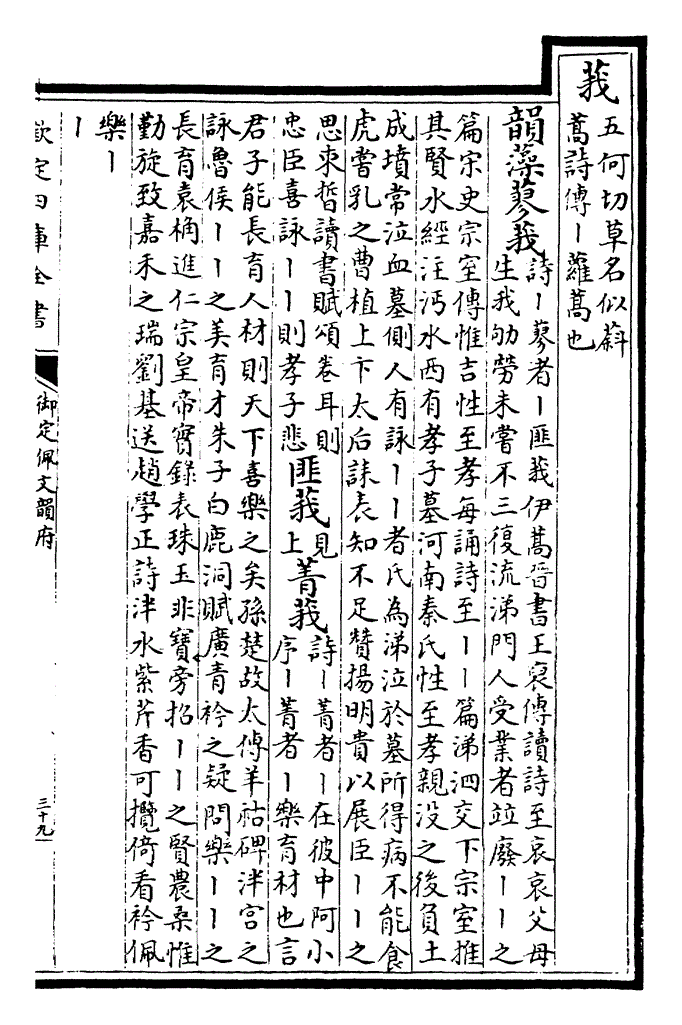 莪
五何切草名似蔚
蒿詩傳丨蘿蒿也
韻藻蓼莪
詩丨蓼者丨匪莪伊蒿晉書王裒傳讀詩至哀哀父母
生我劬勞未嘗不三復流涕門人受業者竝廢丨丨之
篇宋史宗室傳惟吉性至孝每誦詩至丨丨篇涕泗交下宗室推
其賢水經注沔水西有孝子墓河南秦氏性至孝親没之後負土
成墳常泣血墓側人有詠丨丨者氏為涕泣於墓所得病不能食
虎嘗乳之曹植上卞太后誄表知不足贊揚明貴以展臣丨丨之
思束晳讀書賦頌卷耳則
忠臣喜詠丨丨則孝子悲
匪莪
見
上
菁莪
詩丨菁者丨在彼中阿小
序丨菁者丨樂育材也言
君子能長育人材則天下喜樂之矣孫楚故太傅羊祜碑泮宫之
詠魯侯丨丨之美育才朱子白鹿洞賦廣青衿之疑問樂丨丨之
長育袁桷進仁宗皇帝實錄表珠玉非寶旁招丨丨之賢農桑惟
勤旋致嘉禾之瑞劉基送趙學正詩泮水紫芹香可攬倚看衿佩
樂丨
丨
欽定四庫全書
御定佩文韻府
三十九